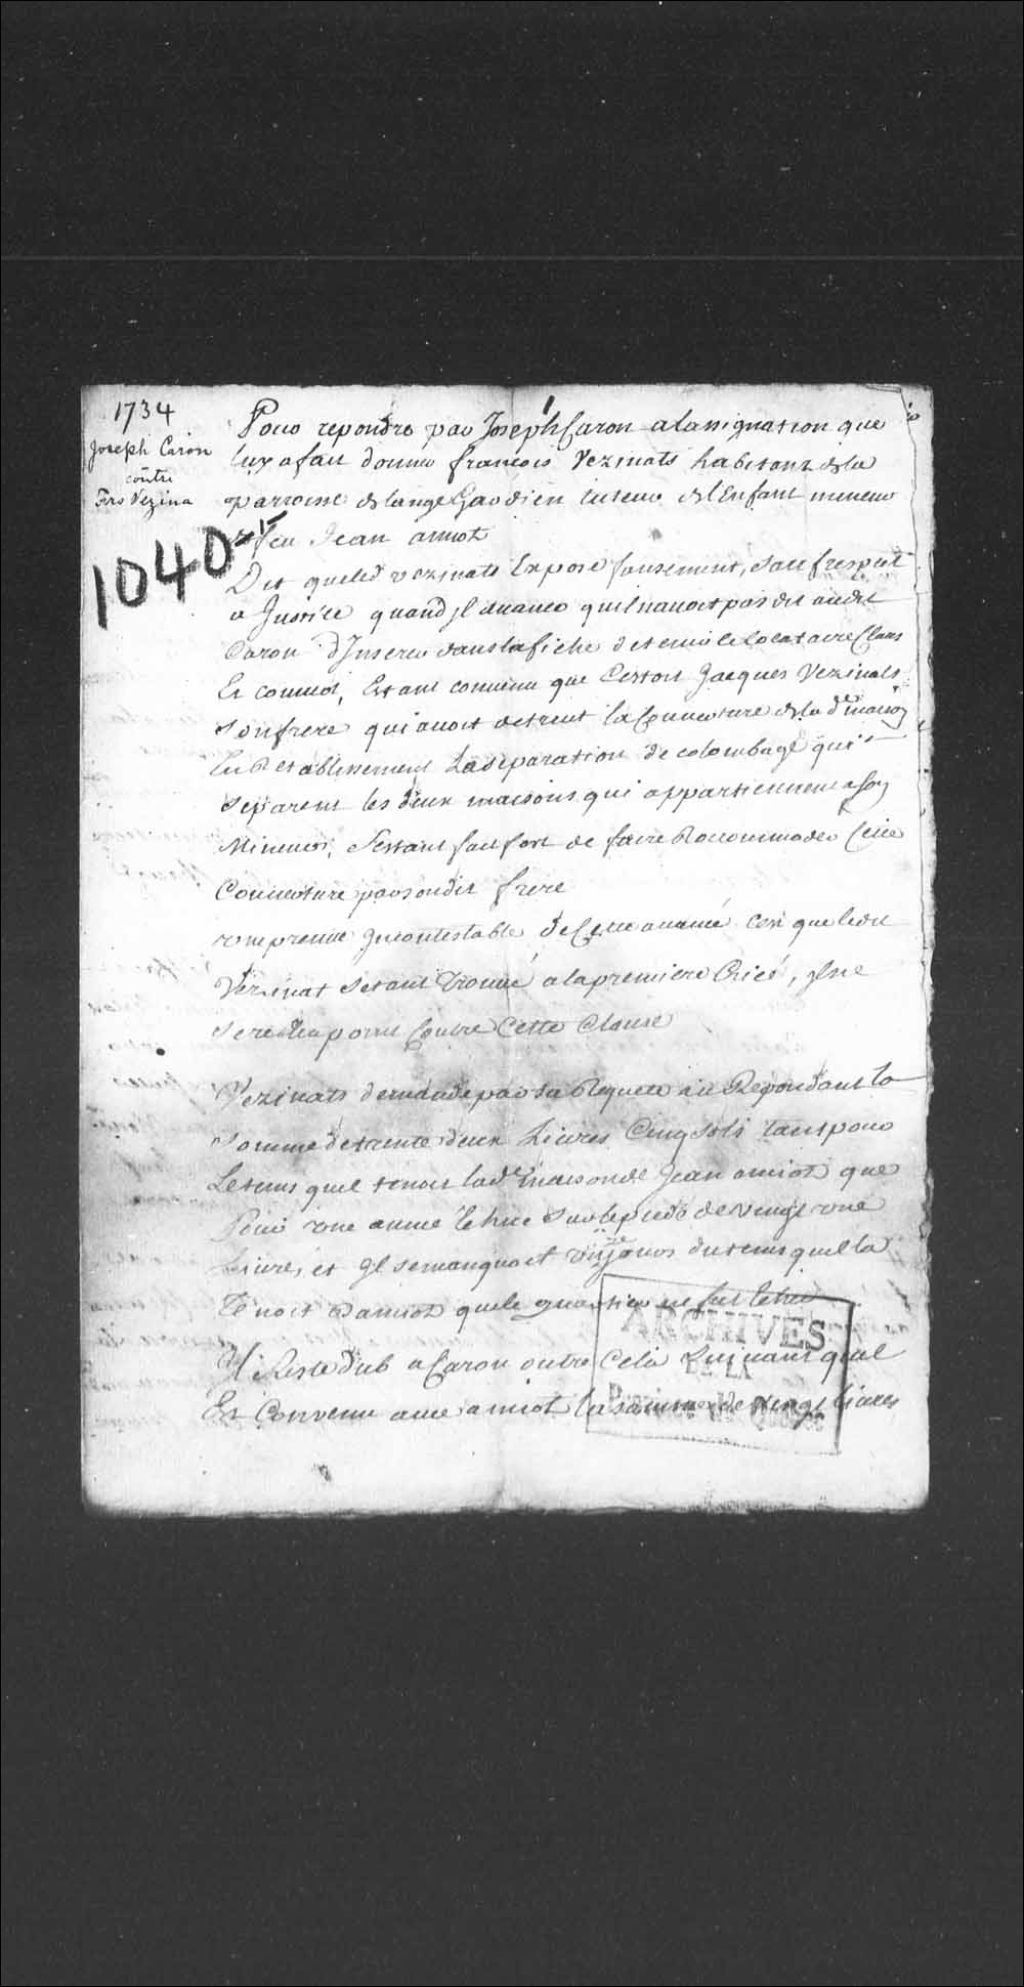 1734
Joseph Caron
contre
Frs Vezina
1040
1
Pour repondre par Joseph Caron alassignation que
luy afait donner francois Vezinats habitant dela
parroisse de lange Gardien tuteur delEnfant mineur
feu Jean amiot
Dit queled vezinats Expose fausement, sauf respect
a Justice quand jl auance quilnauoit pas dit audit
Caron dJnserer danslafiche detenir le locataire Clans
Et couuert, Estant conuenu que Cestoit Jacques Vezinats
sonfrere qui auoit detruit la Couuerture dela de maison
En Retablissement la separation de colombage qui
separent les deux maisons qui appartiennent ason
Mineur, Sestant fait fort de faire Raccommoder Cette
Couuerture parsondit frere
vne preuue Jncontestable de Cette auancé Cest que ledit
Vezinat setant trouué alapremiere Criée, jlne
serecria point Contre Cette Clause
Vezinats demande par sa Requete au Repondant la
somme detrente deux Liures Cinq sols tant pour
Letems quil tenoit lade maison de Jean amiot que
Pour vne année Echue sur lepied de vingt vne
Liure, et jl semanquoit jours dutems quil la
Tenoit Damiot quele quartier ne fut Echu
Jl Reste dub a Caron outre Cela suiuant quil
Est Convenu auec amiot la somme de vingt liures
ARCHIVES
DE LA
Province de Québec